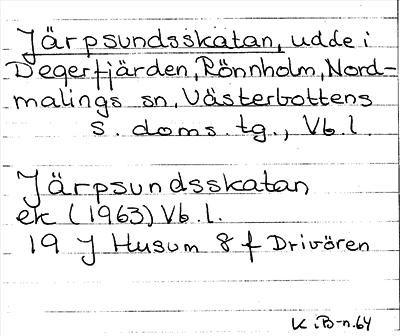 Järpsundsskatan, udde i
Degerfjärden, Rönnholm, Nord-
malings sn, Västerbottens
s. doms. tg., Vb. l.
Järpsundsskatan
ek (1963) Vb. l.
19 J Husum 8 f Drivören
K. B-n. 64